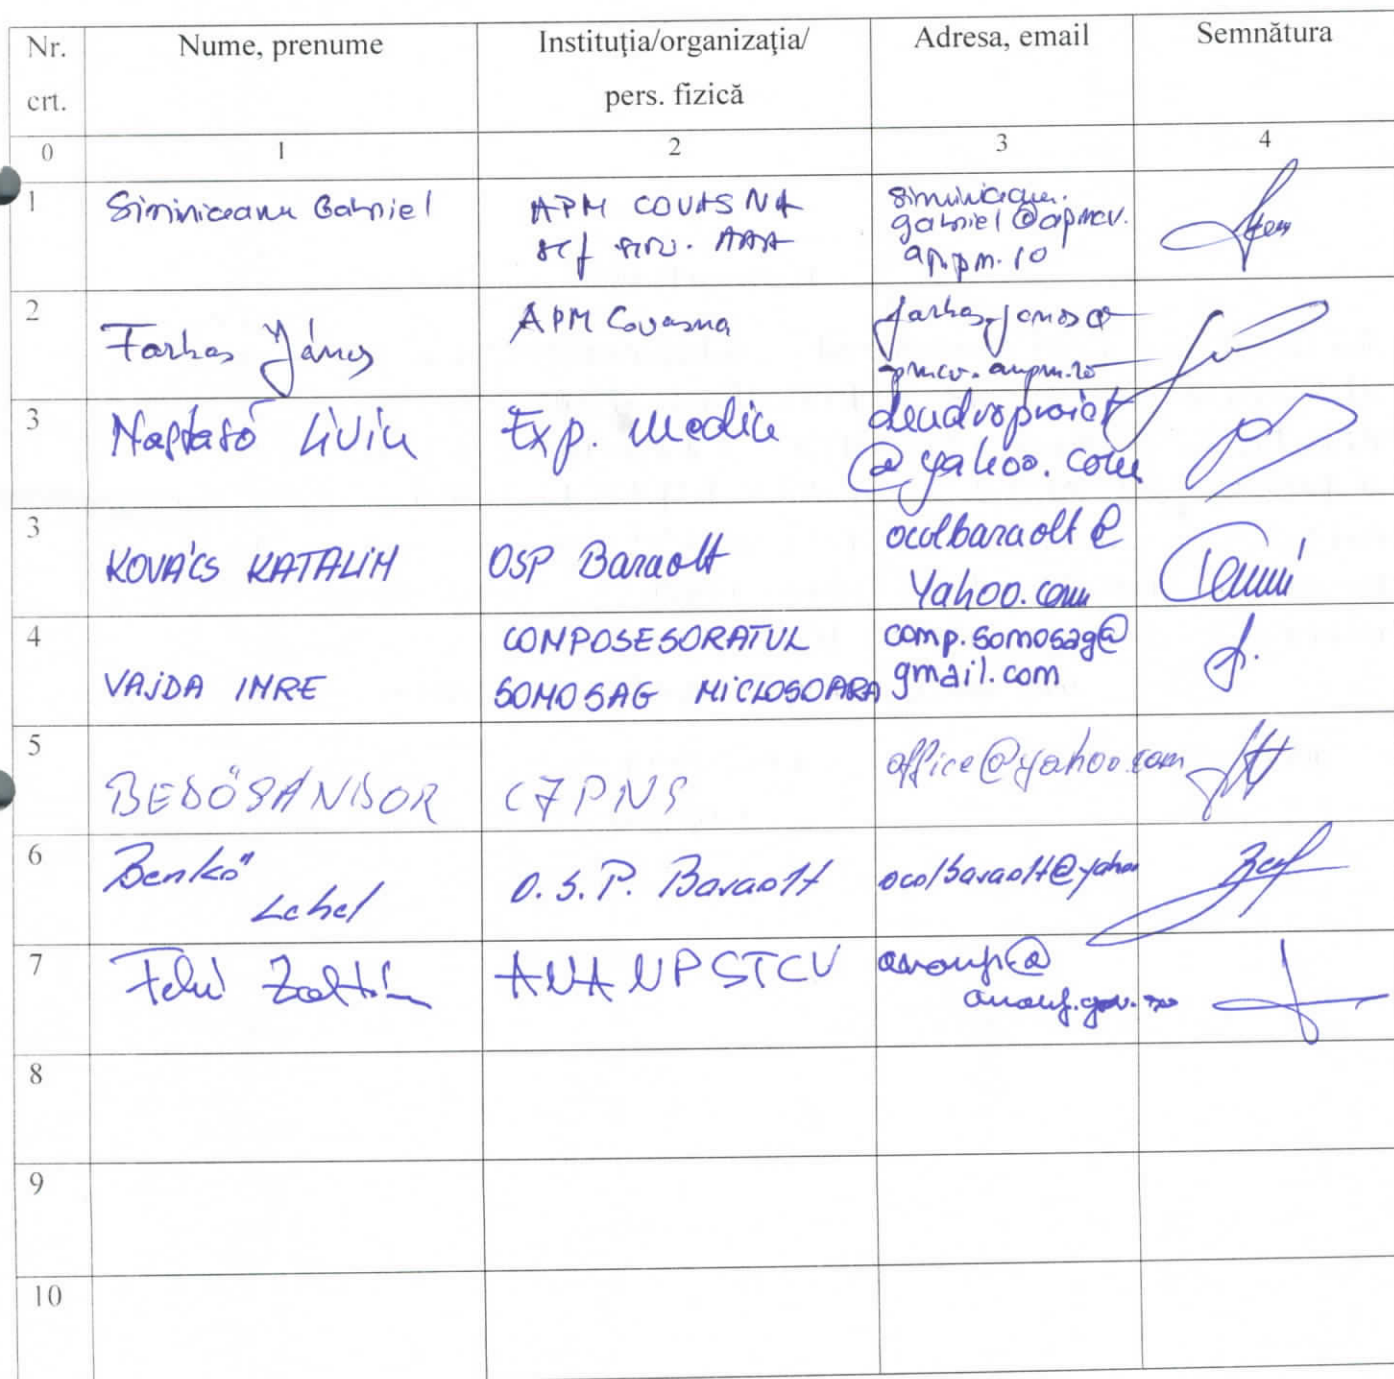 Nr. crt.
Nume, prenume
Instituția/organizația/ pers. fizică
Adresa, email
Semnătura
0
1
2
3
4
1
Siminiceanu Gabriel
APM COVASNA
șef serv. AAA
siminiceanu.
gabriel@apmcv.
anpm.ro
2
Farkas János
APM Covasna
farkas.janos@
apmcv.anpm.ro
3
Liviu
Exp. Mediu
dendroproiect
@yahoo.com
3
KOVÁCS KATALIN
OSP Baraolt
ocolbaraolt@
Yahoo.com
4
VAJDA IMRE
COMPOSESORATUL
SOMOSAG MICLOSOARA
comp.somosag@
gmail.com
5
BEDŐ SÁNDOR
office@yahoo.com
6
Benkő
Lehel
O.S.P. Baraolt
ocolbaraolt@yahoo
7
Zoltán
8
9
10